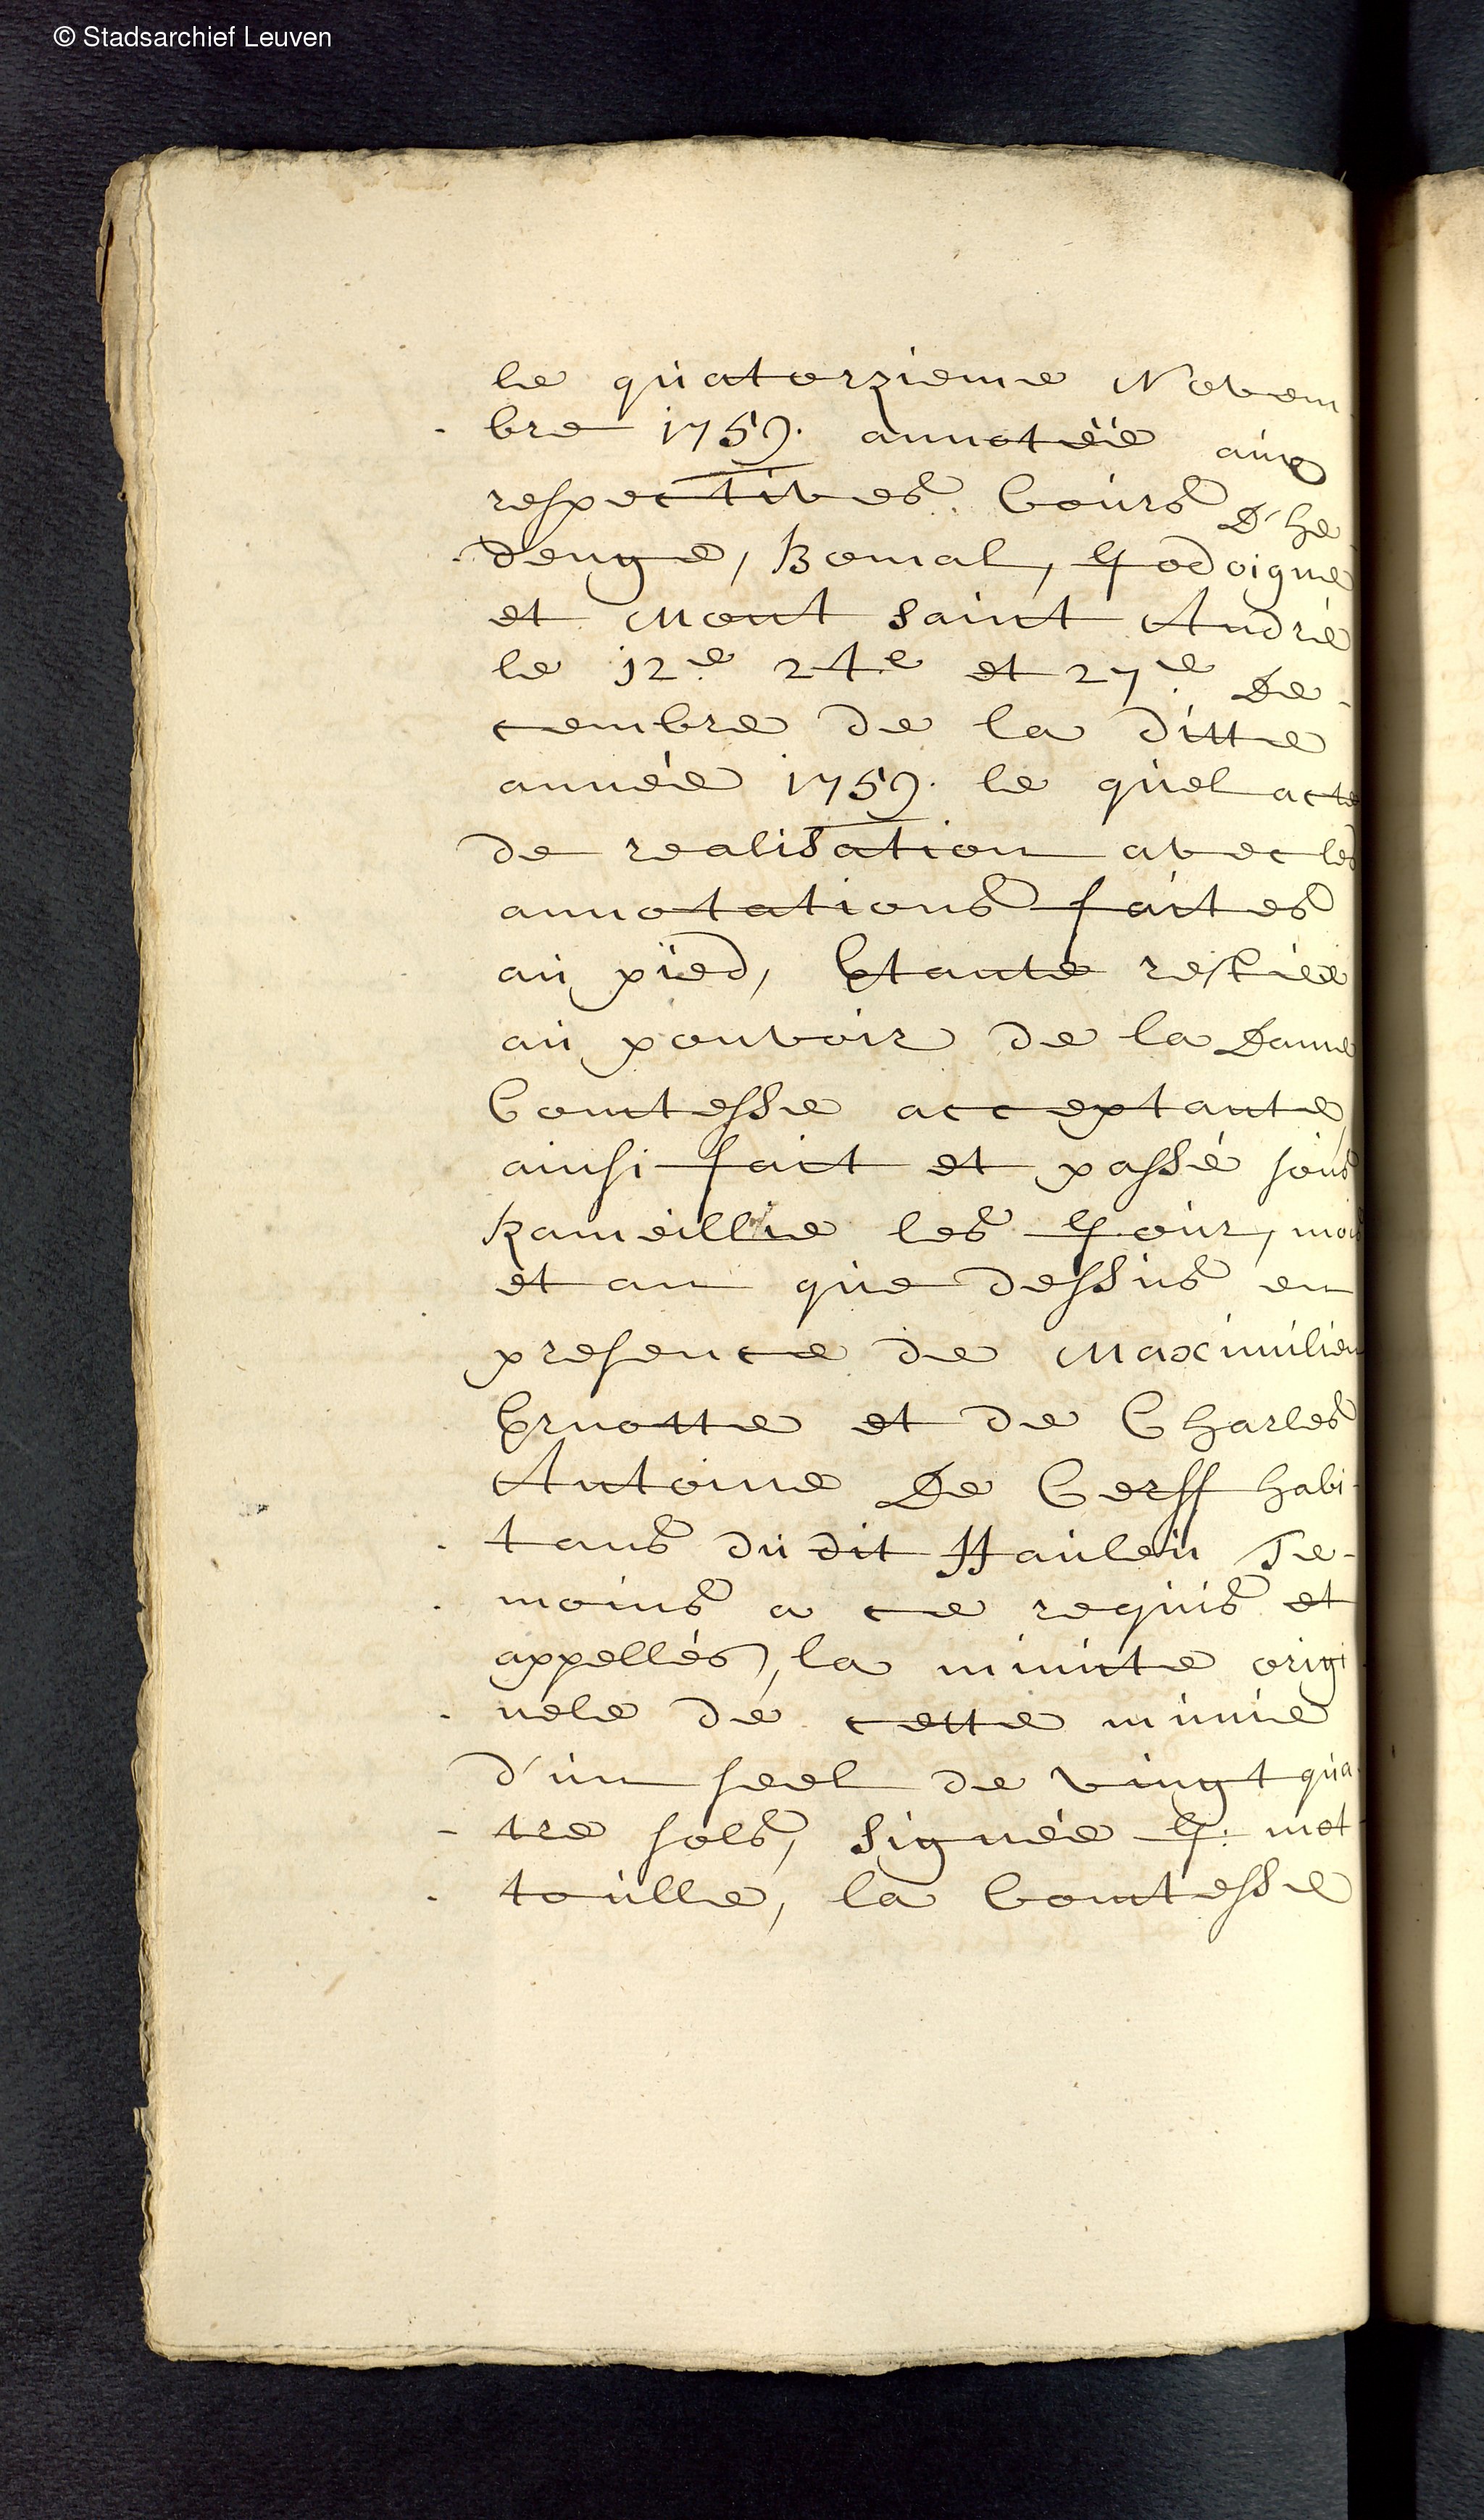 © Stadsarchief Leuven
le quatorzieme Novem
- bre 1759. annotéé aux
respectives Cours D'he
- denge, Bomal, Jodoigne
et Mont saint André
le 12e 24e et 27e De-
cembre de la ditte
année 1759. le quel acte
de realisation avec les
annotations faites
au pied, Etante restéé
au pouvoir de la Dame
Comtesse acceptante,
ainsi fait et passé sous
Rameillie les Jour, mois
et an que dessus en
presence de Maximilien
Gruotte et de Charles
Antoine De Cerff habi-
- tans du dit Hauleu Te-
- moins a ce requis et
appellés, la minute origi
- nele de cette munie
d'un seel de vingt qua-
- tre sols, signée J: mot
- toulle, la Comtesse